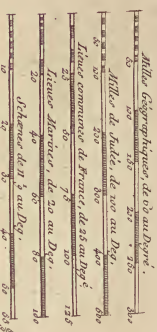 Milles Géographiques, de 60 au Degré.
50 100 150 200 250 300
Milles de Judée, de 100 au Deg.
50 100 200 300 400 500
Lieues communes de France, de 25 au Degé.
25 50 75 100 125
Lieues Marines, de 20 au Deg.
20 40 60 80 100
Schœnes de 11 1/9 au Deg.
10 20 30 40 50 55